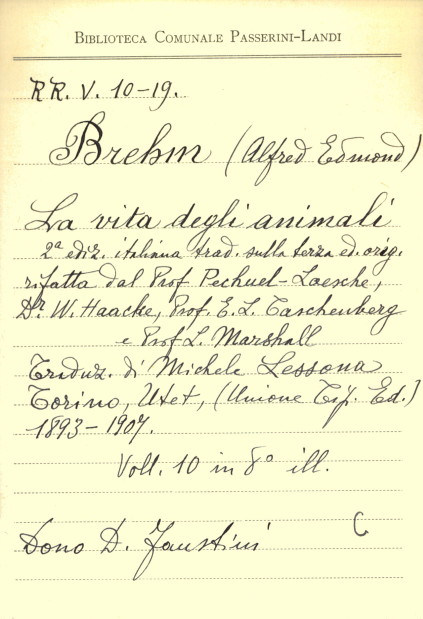 BIBLIOTECA COMUNALE PASSERINI-LANDI
RR. V. 10-19.
Brehm (Alfred Edmond)
La vita degli animali
2ª ediz. italiana trad. sulla terza ed. orig.
rifatta dal Prof Pechuel-Loesche,
Dr. W. Haacke, Prof. E. L. Taschenberg
e Prof L. Marshall
Traduz. di Michele Lessona
Torino, Utet, (Unione Tip. Ed.)
1893-1907.
Voll. 10 in 8º ill.
C
Dono D. Faustini